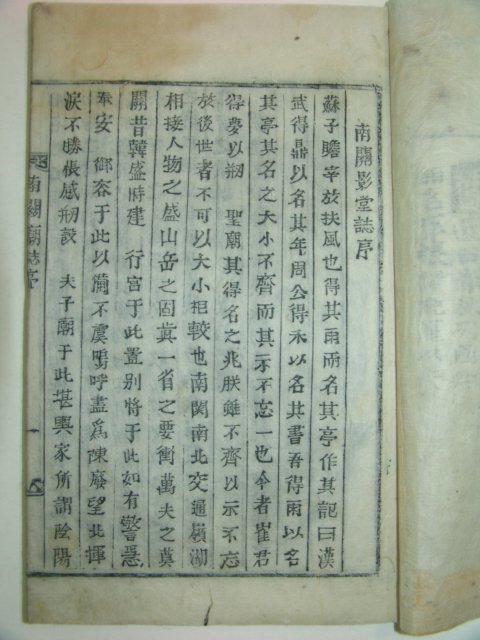 南關影堂誌序
蘇子瞻宰於扶風也得其雨而名其亭作其記曰漢
武得鼎以名其年周公得禾以名其書吾得雨以名
其亭其名之大小不齊而其示不忘一也今者崔君
得夢以刱 聖廟其得名之兆朕雖不齊以示不忘
於後世者不可以大小相較也南関南北交通嶺湖
相接人物之盛山岳之固眞一省之要衝萬夫之莫
關昔韓盛時建 行宮于此置别將于此如有警急
奉安 御容于此以備不虞嗚呼盡爲陳廢望北揮
淚不勝悵感刱設 夫子廟于此堪輿家所謂陰陽
南關廟誌序